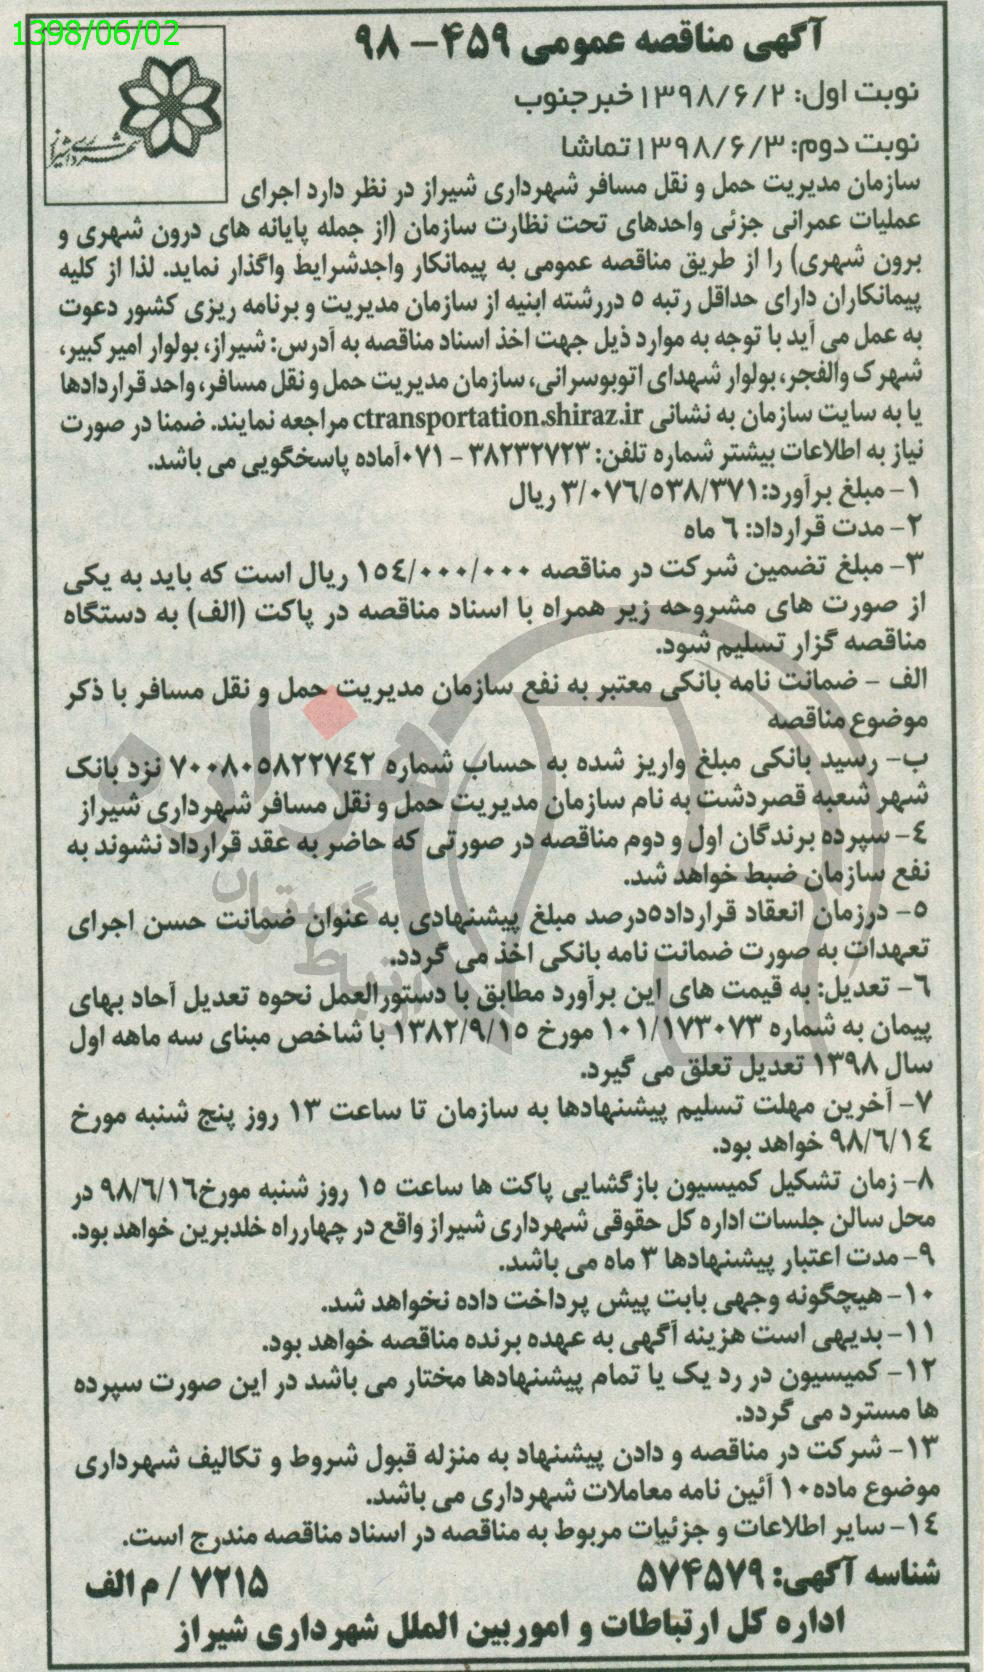 1398/06/02
آگهی مناقصه عمومی ۴۵۹- ۹۸
نوبت اول: ۱۳۹۸/۶/۲ خبرجنوب
نوبت دوم: ۱۳۹۸/۶/۳ تماشا
شهرداری شیراز
سازمان مدیریت حمل و نقل مسافر شهرداری شیراز در نظر دارد اجرای
عملیات عمرانی جزئی واحدهای تحت نظارت سازمان (از جمله پایانه های درون شهری و
برون شهری) را از طریق مناقصه عمومی به پیمانکار واجدشرایط واگذار نماید. لذا از کلیه
پیمانکاران دارای حداقل رتبه ۵ دررشته ابنیه از سازمان مدیریت و برنامه ریزی کشور دعوت
به عمل می آید با توجه به موارد ذیل جهت اخذ اسناد مناقصه به آدرس: شیراز، بولوار امیرکبیر،
شهرک والفجر، بولوار شهدای اتوبوسرانی، سازمان مدیریت حمل و نقل مسافر، واحد قراردادها
یا به سایت سازمان به نشانی ctransportation.shiraz.ir مراجعه نمایند. ضمنا در صورت
نیاز به اطلاعات بیشتر شماره تلفن: ۳۸۲۳۲۷۲۳ - ۰۷۱آماده پاسخگویی می باشد.
۱- مبلغ برآورد: ۳/۰۷۶/۵۳۸/۳۷۱ ریال
۲- مدت قرارداد: ۶ ماه
۳- مبلغ تضمین شرکت در مناقصه ۱۵۴/۰۰۰/۰۰۰ ریال است که باید به یکی
از صورت های مشروحه زیر همراه با اسناد مناقصه در پاکت (الف) به دستگاه
مناقصه گزار تسلیم شود.
الف - ضمانت نامه بانکی معتبر به نفع سازمان مدیریت حمل و نقل مسافر با ذکر
موضوع مناقصه
ب- رسید بانکی مبلغ واریز شده به حساب شماره ۷۰۰۸۰۵۸۲۲۷۴۲ نزد بانک
شهر شعبه قصردشت به نام سازمان مدیریت حمل و نقل مسافر شهرداری شیراز
۴- سپرده برندگان اول و دوم مناقصه در صورتی که حاضر به عقد قرارداد نشوند به
نفع سازمان ضبط خواهد شد.
۵- درزمان انعقاد قرارداد۵درصد مبلغ پیشنهادی به عنوان ضمانت حسن اجرای
تعهدات به صورت ضمانت نامه بانکی اخذ می گردد.
۶- تعدیل: به قیمت های این برآورد مطابق با دستورالعمل نحوه تعدیل آحاد بهای
پیمان به شماره ۱۰۱/۱۷۳۰۷۳ مورخ ۱۳۸۲/۹/۱۵ با شاخص مبنای سه ماهه اول
سال ۱۳۹۸ تعدیل تعلق می گیرد.
۷- آخرین مهلت تسلیم پیشنهادها به سازمان تا ساعت ۱۳ روز پنج شنبه مورخ
۹۸/۶/۱۴ خواهد بود.
۸- زمان تشکیل کمیسیون بازگشایی پاکت ها ساعت ۱۵ روز شنبه مورخ۹۸/۶/۱۶ در
محل سالن جلسات اداره کل حقوقی شهرداری شیراز واقع در چهارراه خلدبرین خواهد بود.
۹- مدت اعتبار پیشنهادها ۳ ماه می باشد.
۱۰- هیچگونه وجهی بابت پیش پرداخت داده نخواهد شد.
۱۱- بدیهی است هزینه آگهی به عهده برنده مناقصه خواهد بود.
۱۲- کمیسیون در رد یک یا تمام پیشنهادها مختار می باشد در این صورت سپرده
ها مسترد می گردد.
۱۳- شرکت در مناقصه و دادن پیشنهاد به منزله قبول شروط و تکالیف شهرداری
موضوع ماده۱۰ آئین نامه معاملات شهرداری می باشد.
۱۴- سایر اطلاعات و جزئیات مربوط به مناقصه در اسناد مناقصه مندرج است.
شناسه آگهی: ۵۷۴۵۷۹ ۷۲۱۵ / م الف
اداره کل ارتباطات و اموربین الملل شهرداری شیراز